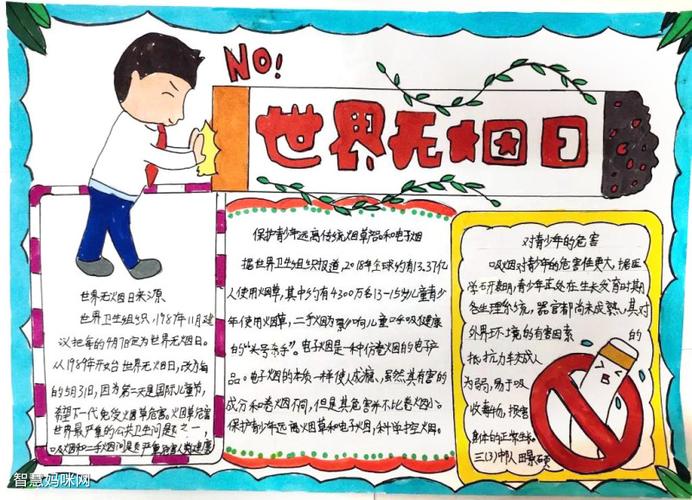 NO!
世界无烟日
世界无烟日来源
世界卫生组织1987年11月建
议把每年的4月7日定为世界无烟日。
从1989年开始世界无烟日,改为每
年的5月31日,因为第二天是国际儿童节,
希望下一代免受烟草危害。烟草危害
世界最严重的公共卫生问题之一,
吸烟和二手烟问题严重危害人类健康
保护青少年远离传统烟草制品和电子烟
据世界卫生组织报道,2018年全球约有13.37亿
人使用烟草,其中约有4300万名13-15岁儿童青少
年使用烟草,二手烟为影响儿童呼吸健康
的“头号杀手”。电子烟是一种仿卷烟的电子产
品。电子烟的本质一样使人成瘾,虽然其有害的
成分和卷烟不同,但是其危害并不比卷烟小。
保护青少年远离烟草和电子烟,科学控烟。
对青少年的危害
吸烟对青少年的危害但更大,据医
学研究表明,青少年正处在生长发育时期
各生理系统,器官都尚未成熟,其对
外界环境的有害因素的
抵抗力车大成人
为弱,易于吸
收毒物,损害
身体的正常生长。
三(3)中队
智慧妈咪网